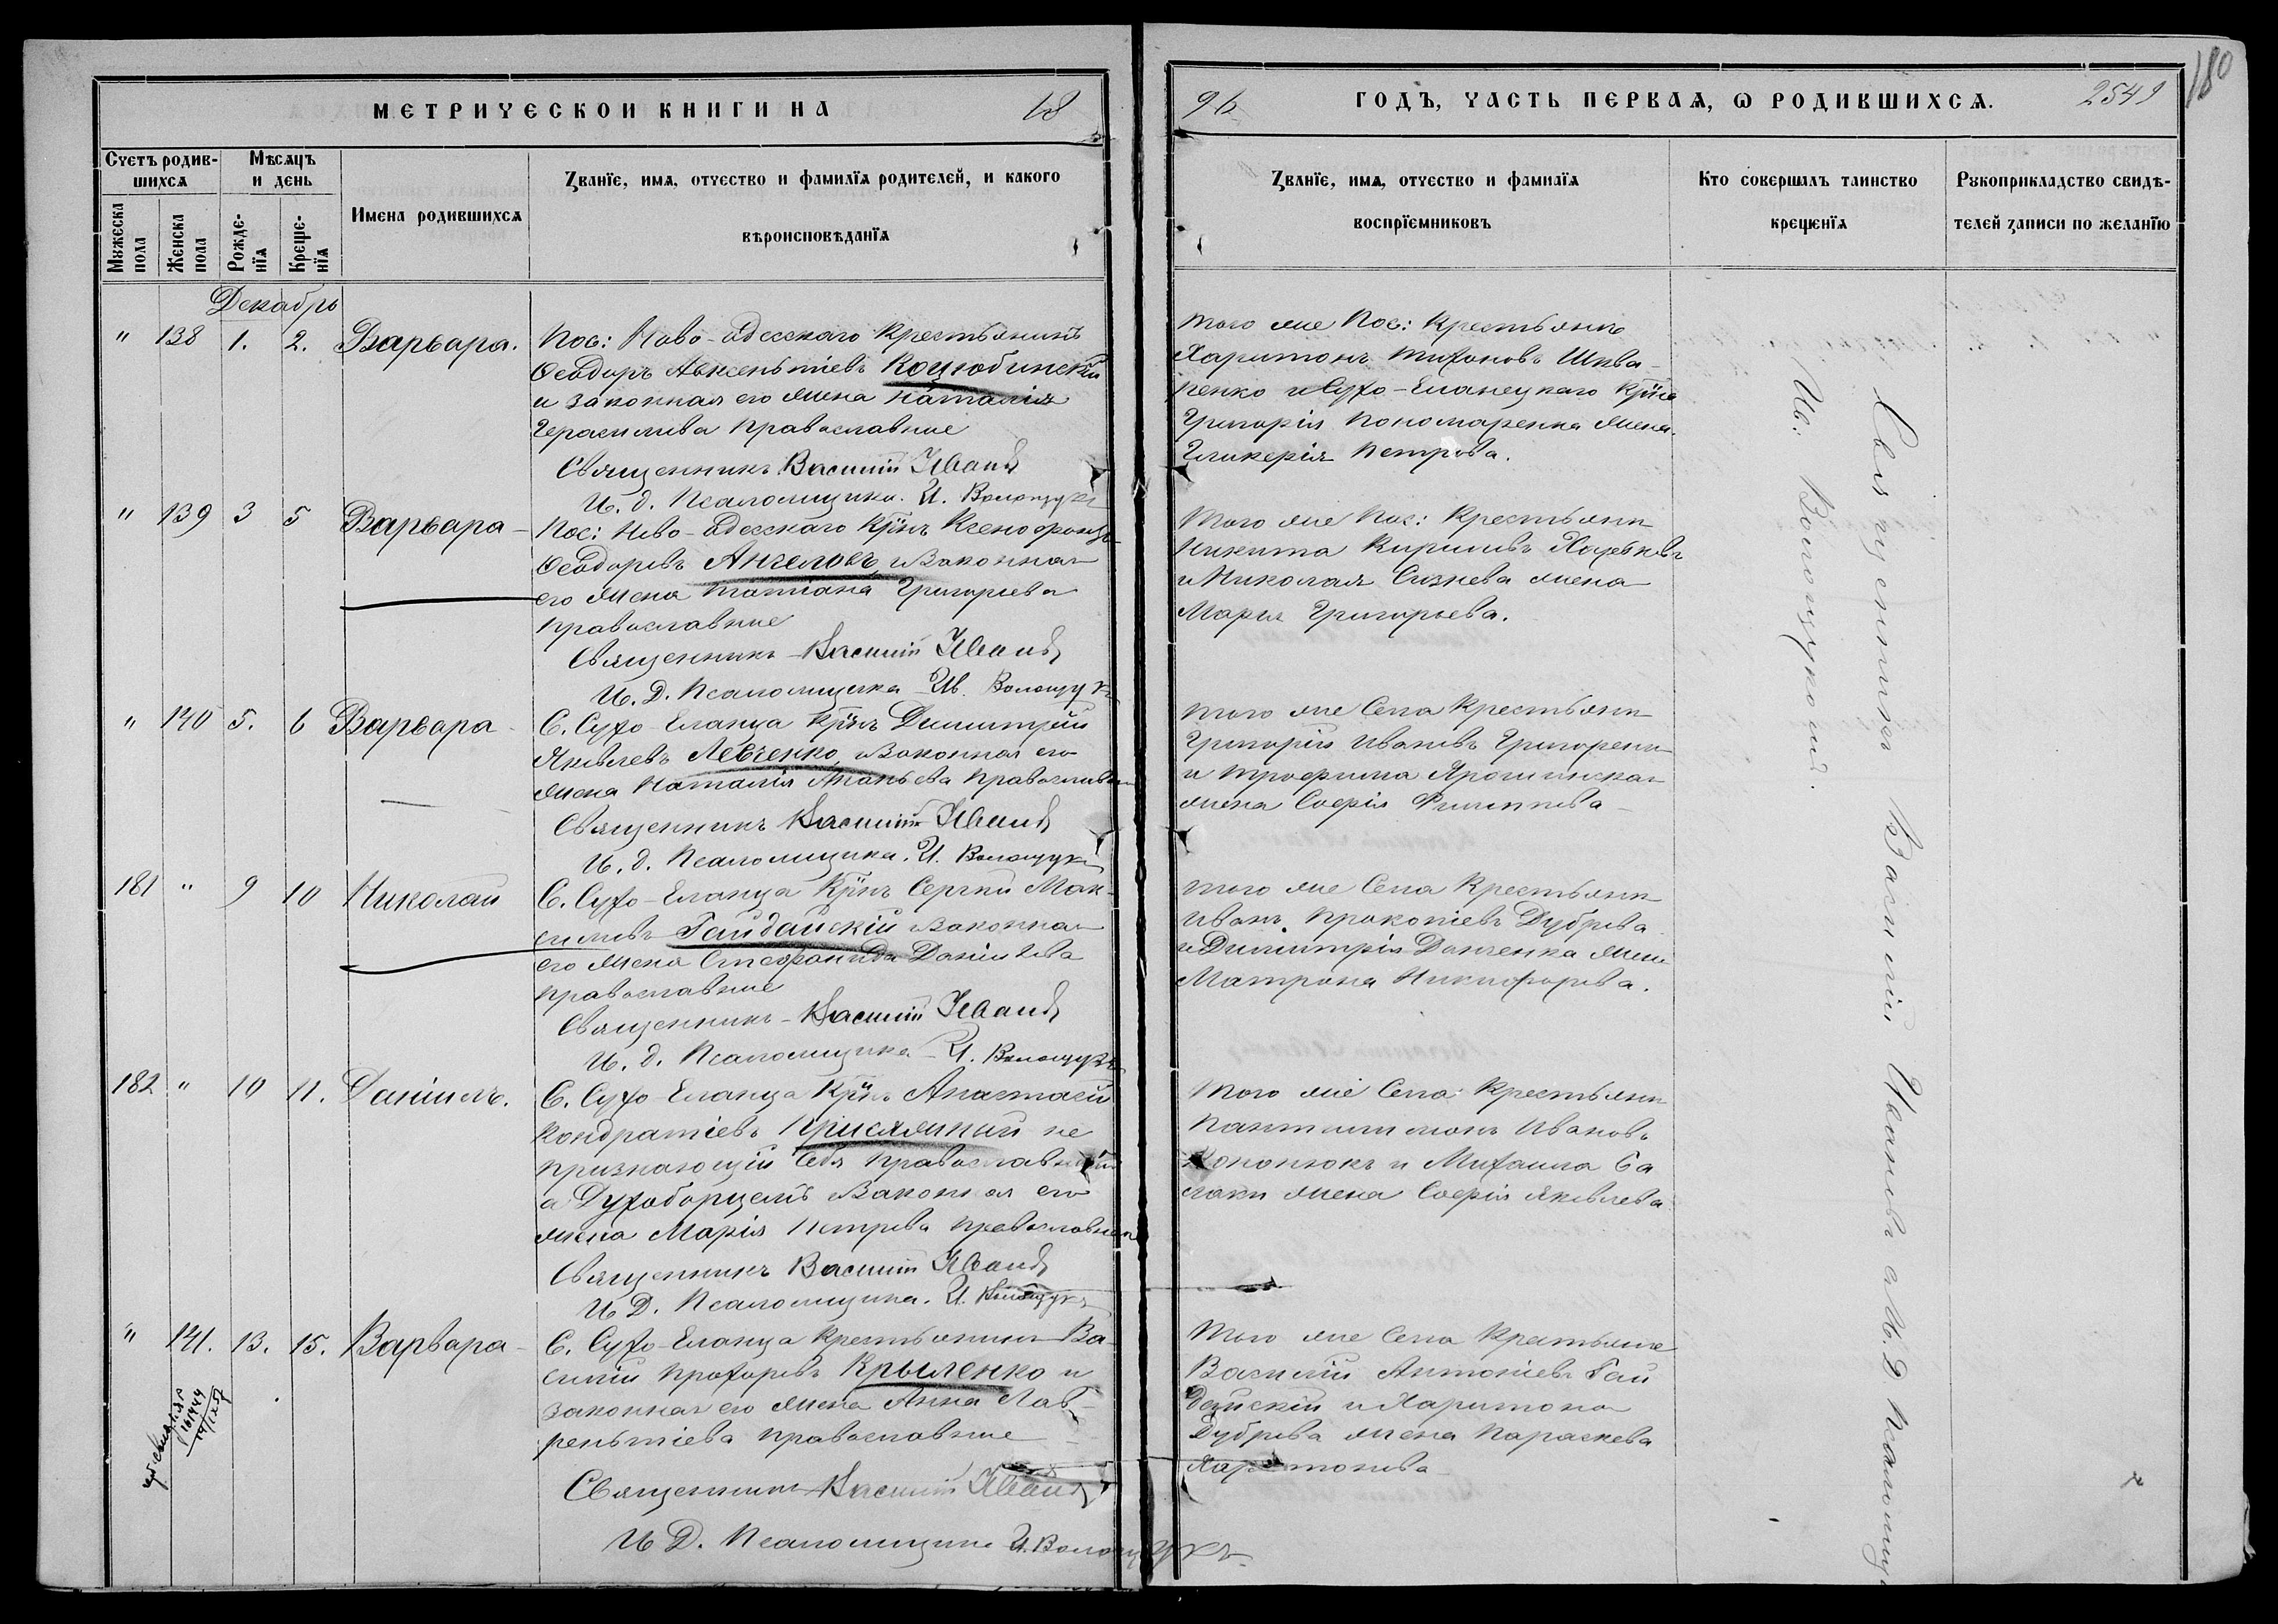 МЕТРИЧЕСКОЙ КНИГИ НА 18
96 ГОДЪ, ЧАСТЬ ПЕРВАѦ, Ѡ РОДИВШИХСѦ. 2549
180
Счетъ родив-
шихсѧ
Мѣсѧцъ
и день
Имена родившихсѧ
Званїе, имѧ, отчество и фамилїѧ родителей, и какого
вѣроисповѣданїѧ
Мужеска
пола
Женска
пола
Рожде-
нїѧ
Креще-
нїѧ
Званїе, имѧ, отчество и фамилїѧ
воспрїемниковъ
Кто совершалъ таинство
крещенїѧ
Рукоприкладство свидѣ-
телей записи по желанїю
Декабрь
" 138 1. 2. Варвара.
Пос: Ново-Одесскаго Крестьянинъ
Ѳеодоръ Авксентіевъ Коцюбинскій
и законная его жена Наталія
Герасимова Православные
Священникъ Василій Ивановъ
И. д. Псаломщика. И. Волощукъ
того же Пос: Крестьянинъ
Харитонъ Тихоновъ Шква-
ренко и Сухо-Еланецкаго Крѣна
Григорія Пономаренка жена
Гликерія Петрова.
" 139 3 5 Варвара
Пос: Ново-Одесскаго Крнъ Ксенофонтъ
Ѳеодоровъ Ангеловъ и законная
его жена Татіана Григорьева
Православные
Священникъ Василій Ивановъ
И. Д. Псаломщика Ив. Волощукъ
Того же Пос: Крестьянинъ
Никита Кириловъ
и Николая жена
Марія Григорьева.
" 140 5. 6 Варвара
С. Сухо-Еланца Крнъ Димитрій
Яковлевъ Левченко и законная его
жена Наталія Ананьева Православные
Священникъ Василій Ивановъ
И. д. Псаломщика. И. Волощукъ
того же Села Крестьянинъ
Григорій Ивановъ Григоренко
и Трофима
жена Софія Филиппова
181 " 9 10 Николай
С. Сухо-Еланца Крнъ Сергій Мак-
симовъ Гайдайскій и законная
его жена Стефанида Даніилова
Православные
Священникъ Василій Ивановъ
И. д. Псаломщика И. Волощукъ
того же Села Крестьянинъ
Иванъ Прокопіевъ Дуброва
и Димитрія Данченка жена
Матрона Никифорова.
182 " 10 11. Даніилъ.
С. Сухо-Еланца Крнъ Анастасій
Кондратіевъ Присяжный не
признающій себя православнымъ
а Духоборцемъ и законная его
жена Марія Петрова православная
Священникъ Василій Ивановъ
И Д. Псаломщика. И. Волощукъ
Того же Села Крестьянинъ
Пантелимонъ Ивановъ
Кононюкъ и Михаила Са
жена Софія Яковлева
" 141. 13. 15. Варвара
С. Сухо-Еланца Крестьянинъ Ва-
силій Прохоровъ Крыленко и
законная его жена Анна Лав-
рентіева православные
Священникъ Василій Ивановъ
И Д. Псаломщика И. Волощукъ
Того же Села Крестьяне
Василій Антоніевъ Гай
дайскій и Харитона
Дуброва жена Параскева
Харитонова
Священникъ Василій Ивановъ и И. Д. Псаломщи
Ив. Волощукомъ.